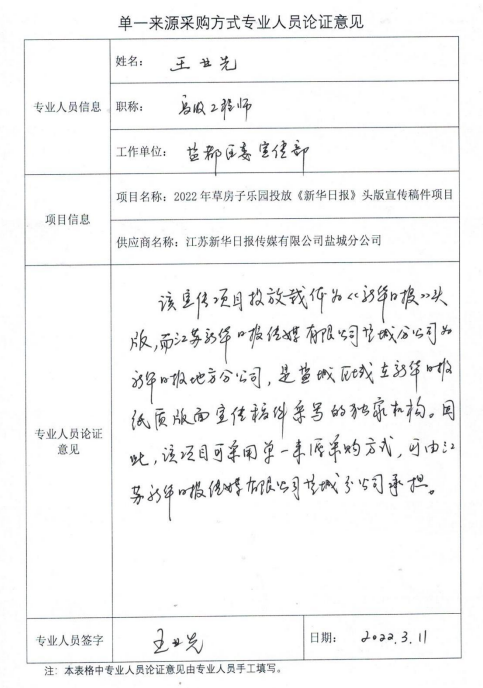 单一来源采购方式专业人员论证意见
专业人员信息
姓名：王业先
职称：高级工程师
工作单位：盐都区委宣传部
项目信息
项目名称：2022年草房子乐园投放《新华日报》头版宣传稿件项目
供应商名称：江苏新华日报传媒有限公司盐城分公司
专业人员论证
意见
该宣传项目投放载体为《新华日报》头
版，而江苏新华日报传媒有限公司盐城分公司为
新华日报地方分公司，是盐城区域在新华日报
纸质版面宣传稿件采写的独家机构。因
此，该项目可采用单一来源采购方式，可由江
苏新华日报传媒有限公司盐城分公司承担。
专业人员签字
王业先
日期：2022.3.11
注：本表格中专业人员论证意见由专业人员手工填写。